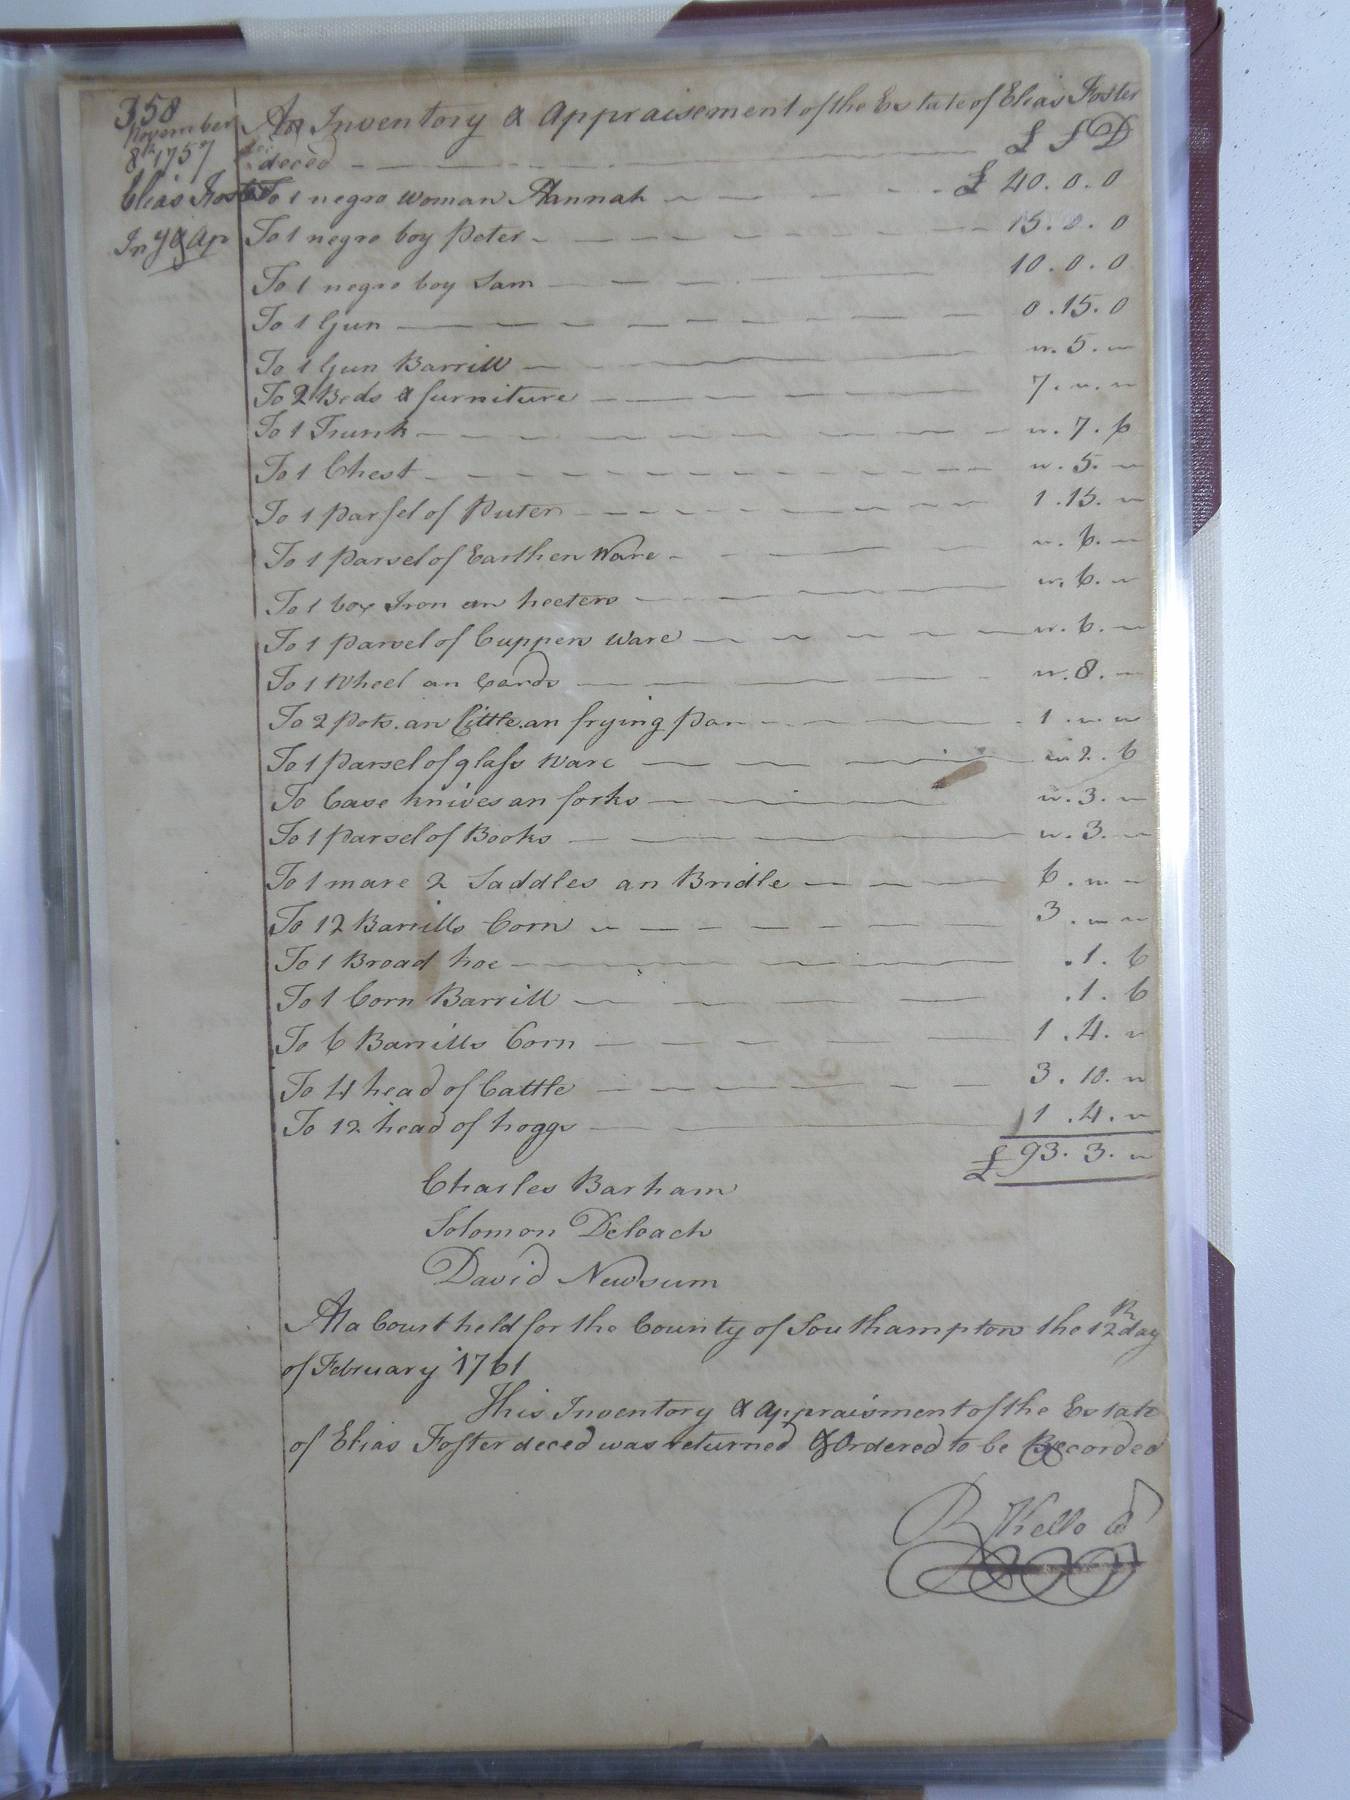 358
November
8th 1757
Elias Foster
Inv & Ap
An Inventory & Appraisement of the Estate of Elias Foster
deced £ S D
To 1 negro woman Hannah £ 40. 0. 0
To 1 negro boy Peter 15. 0. 0
To 1 negro boy Sam 10. 0. 0
To 1 Gun 0. 15. 0
To 1 Gun Barrill ". 5. "
To 2 Beds & furniture 7. ". "
To 1 Trunk ". 7. 6
To 1 Chest ". 5. "
To 1 Parsel of Puter 1. 15. "
To 1 Parsel of Earthen Ware ". 6. "
To 1 box Iron an heeters ". 6. "
To 1 Parsel of Cuppers Ware ". 6. "
To 1 Wheel an Cards ". 8. "
To 2 Pots. an Cittle. an frying Pan 1. ". "
To 1 Parsel of glass Ware " 2. 6
To Case knives an forks ". 3. "
To 1 Parsel of Books ". 3. "
To 1 mare 2 Saddles an Bridle 6. ". "
To 12 Barrills Corn 3. ". "
To 1 Broad hoe . 1. 6
To 1 Corn Barrill . 1. 6
To 6 Barrills Corn 1. 4. "
To 4 head of Cattle 3. 10. "
To 12 head of hoggs 1. 4. "
£ 93. 3. "
Charles Barham
Solomon Deloach
David Newsum
At a Court held for the County of Southampton the 12th day
of February 1761
This Inventory & Appraisment of the Estate
of Elias Foster deced was returned & Ordered to be Recorded
R Kello